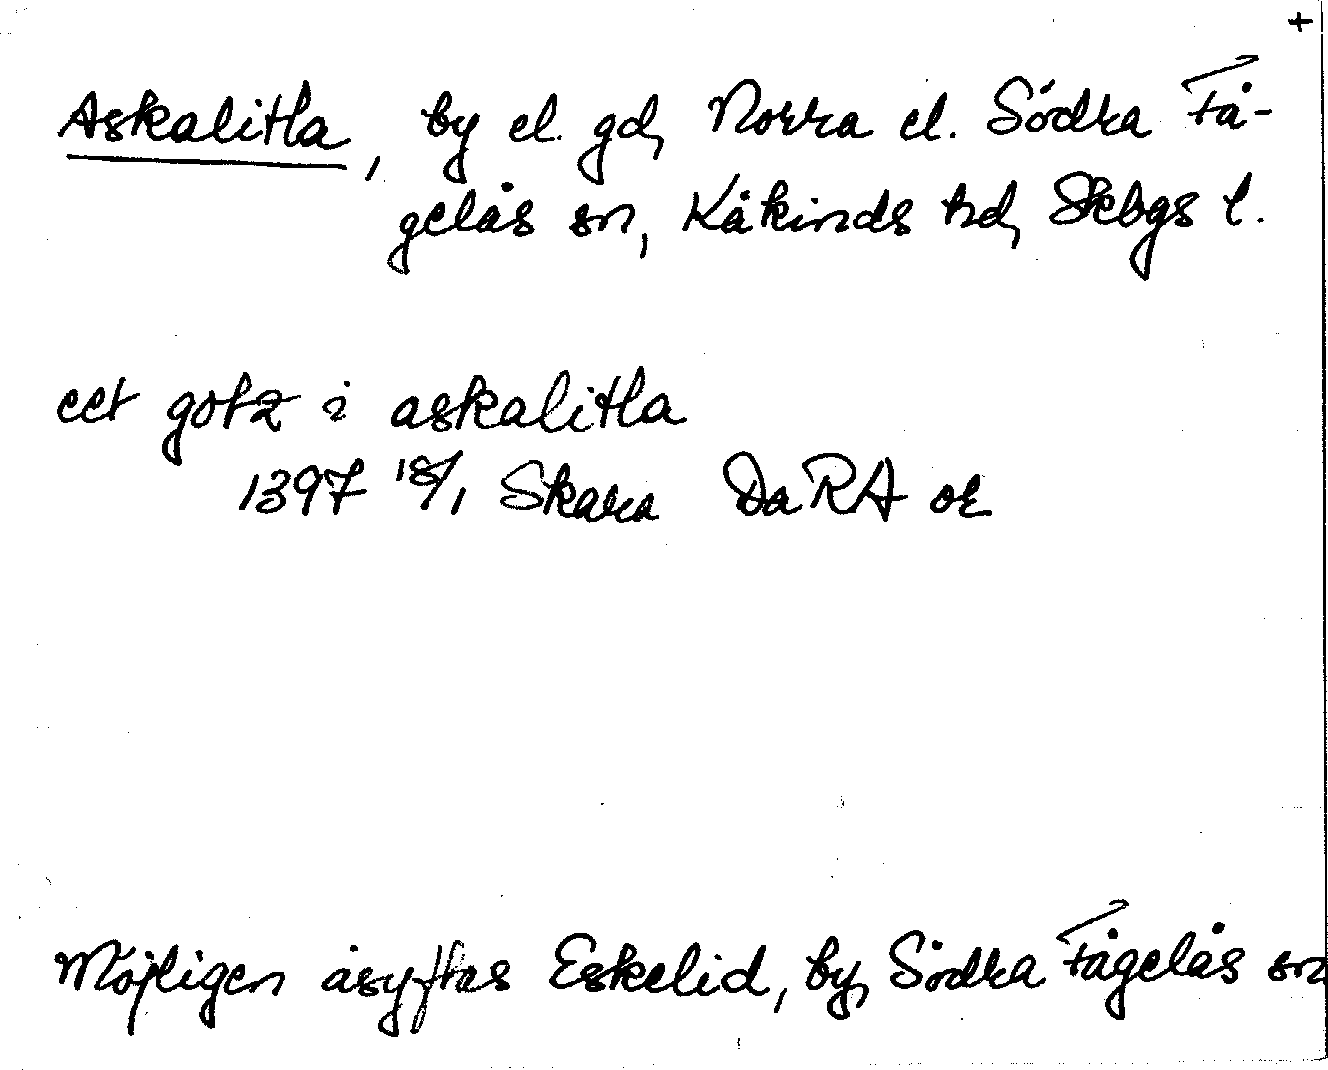 +
Askalitla, by el. gd, Norra el. Södra Få-
gelås sn, Kåkinds hd, Skbgs l.
eet gotz i askalitla
1397 18/1 Skara DaRA or
Möjligen åsyftas Eskelid, by, Södra Fågelås sn